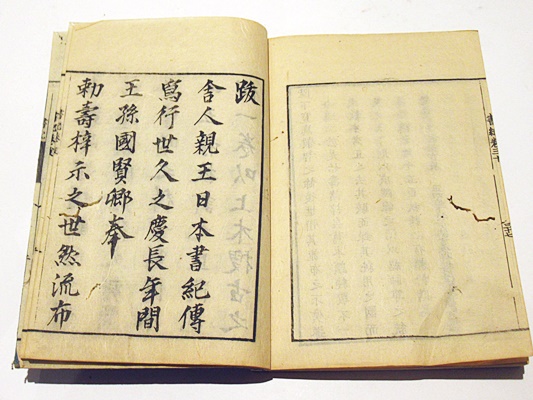 跋
舎人親王日本書紀傳
寫行世久之慶長年間
王孫國賢卿奉
勅壽梓示之世然流布